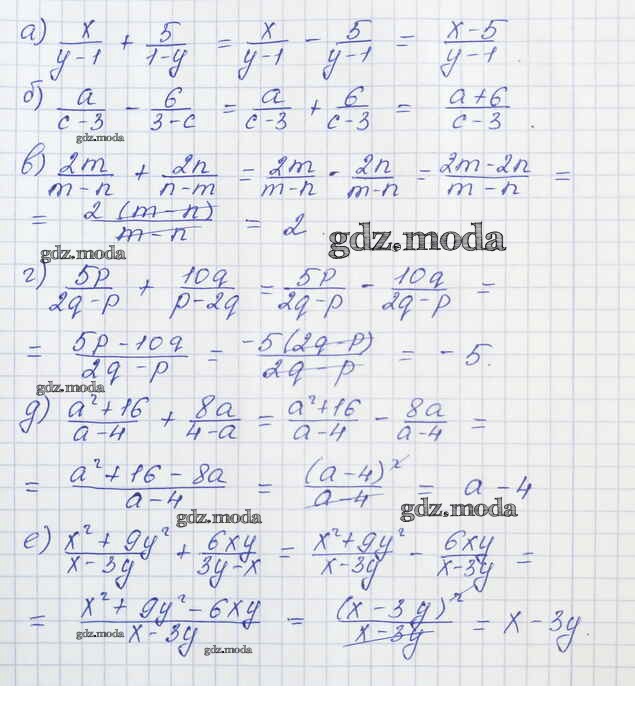 а) x/(y-1) + 5/(1-y) = x/(y-1) - 5/(y-1) = (x-5)/(y-1).
б) a/(c-3) - 6/(3-c) = a/(c-3) + 6/(c-3) = (a+6)/(c-3).
gdz.moda
в) 2m/(m-n) + 2n/(n-m) = 2m/(m-n) - 2n/(m-n) = (2m-2n)/(m-n) =
= 2(m-n)/(m-n) = 2.
gdz.moda
gdz.moda
г) 5p/(2q-p) + 10q/(p-2q) = 5p/(2q-p) - 10q/(2q-p) =
= (5p-10q)/(2q-p) = -5(2q-p)/(2q-p) = -5.
gdz.moda
д) (a²+16)/(a-4) + 8a/(4-a) = (a²+16)/(a-4) - 8a/(a-4) =
= (a²+16-8a)/(a-4) = (a-4)²/(a-4) = a-4
gdz.moda
gdz.moda
е) (x²+9y²)/(x-3y) + 6xy/(3y-x) = (x²+9y²)/(x-3y) - 6xy/(x-3y) =
= (x²+9y²-6xy)/(x-3y) = (x-3y)²/(x-3y) = x-3y.
gdz.moda
gdz.moda